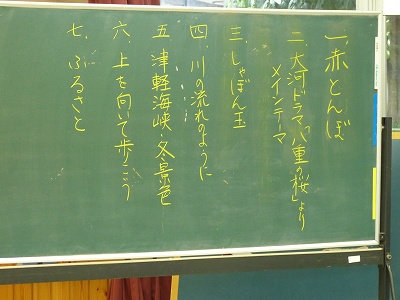 一、赤とんぼ
二、大河ドラマ「八重の桜」より
メインテーマ
三、しゃぼん玉
四、川の流れのように
五、津軽海峡・冬景色
六、上を向いて歩こう
七、ふるさと